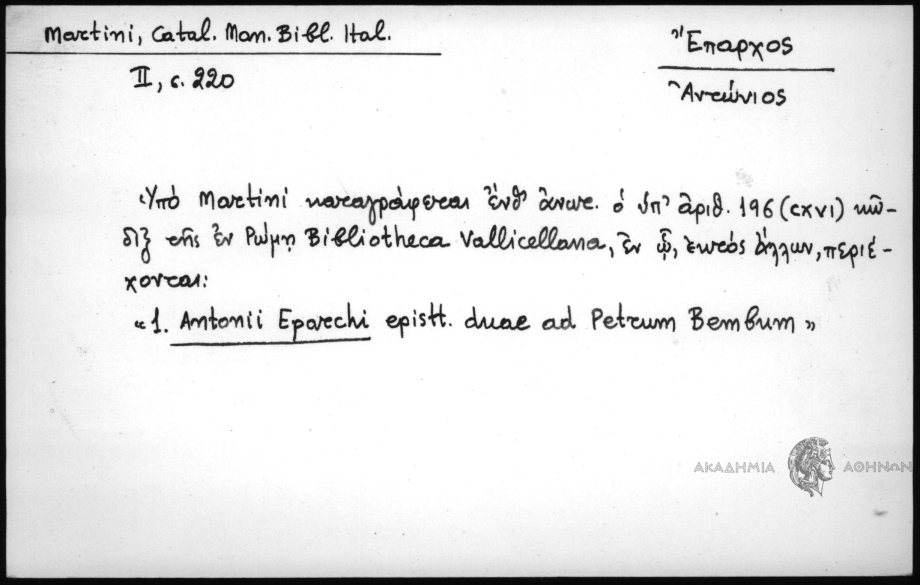 Martini, Catal. Man. Bibl. Ital.
II, σ. 220
Ἔπαρχος
Ἀντώνιος
Ὑπό Martini καταγράφεται ἔνθ' ἄνωτ. ὁ ὑπ' ἀριθ. 196 (CXVI) κῶ-
διξ τῆς ἐν Ρώμῃ Bibliotheca Vallicellana, ἐν ᾧ, ἐκτός ἄλλων, περιέ-
χονται:
« 1. Antonii Eparchi epistt. duae ad Petrum Bembum »
ΑΚΑΔΗΜΙΑ ΑΘΗΝΩΝ